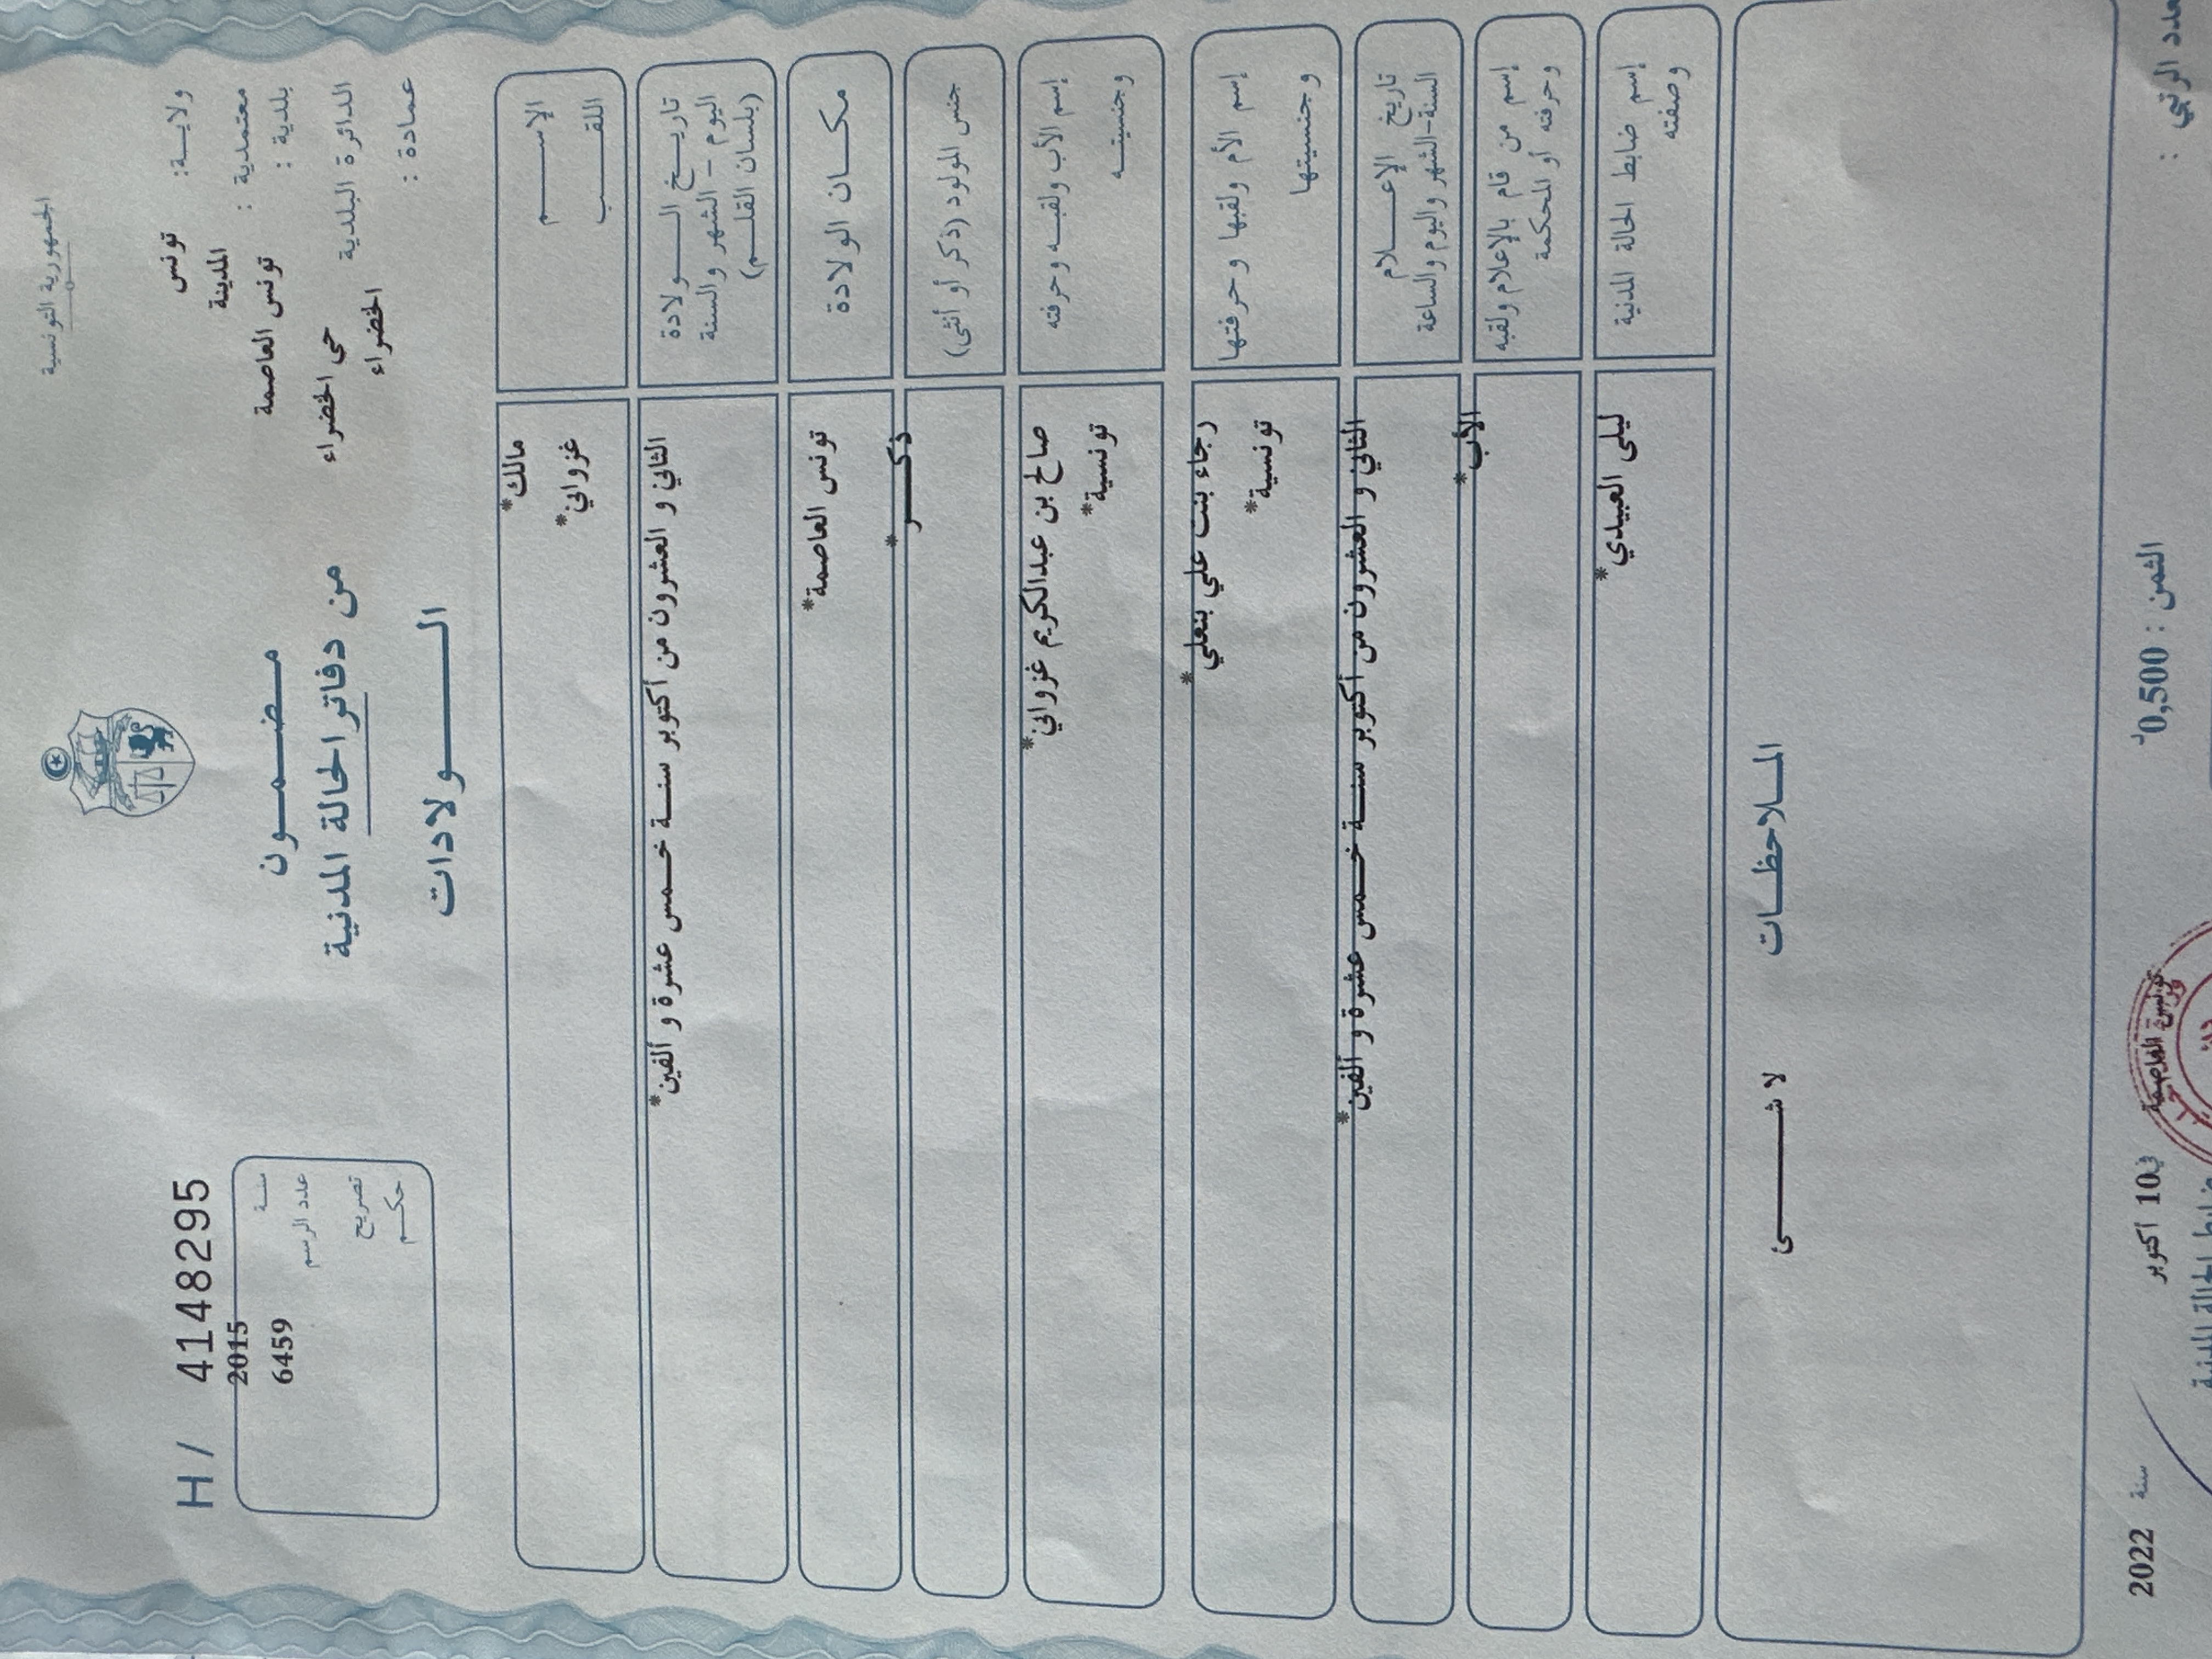 الجمهورية التونسية
ولايـة: تونس
معتمدية : المدينة
بلدية : تونس العاصمة
الدائرة البلدية حي الخضراء
عمادة : الخضراء
مـضـمـون
من دفاتر الحالة المدنية
الـولادات
H/ 4148295
سنـة 2015
عدد الرسم 6459
تصريح
حكـم
الإسـم مالك*
اللقـب غزواني*
تاريـخ الـولادة
اليوم - الشهر والسنة
(بلسان القلـم)
الثاني و العشرون من أكتوبر سنـة خـمس عشرة و ألفين*
مكـان الولادة تونس العاصمة*
جنس المولود (ذكر أو أنثى) ذكـر*
إسم الأب ولقبـه وحرفته صالح بن عبدالكريم غزواني*
وجنسيتـه تونسية*
إسم الأم ولقبها وحرفتها رجاء بنت علي بنعلي*
وجنسيتها تونسية*
تاريخ الإعـلام
السنة-الشهر واليوم والساعة
الثاني و العشرون من أكتوبر سنـة خـمس عشرة و ألفين*
إسم من قام بالإعلام ولقبه
وحرفته أو المحكمة
الأب*
إسم ضابط الحالة المدنية
وصفته
ليلى العبيدي*
المـلاحظـات
لا شـئ
عدد الرتبي :
الثمن : 0,500د
تونس العاصمة في 10 أكتوبر سنة 2022
ضابط الحالة المدنية